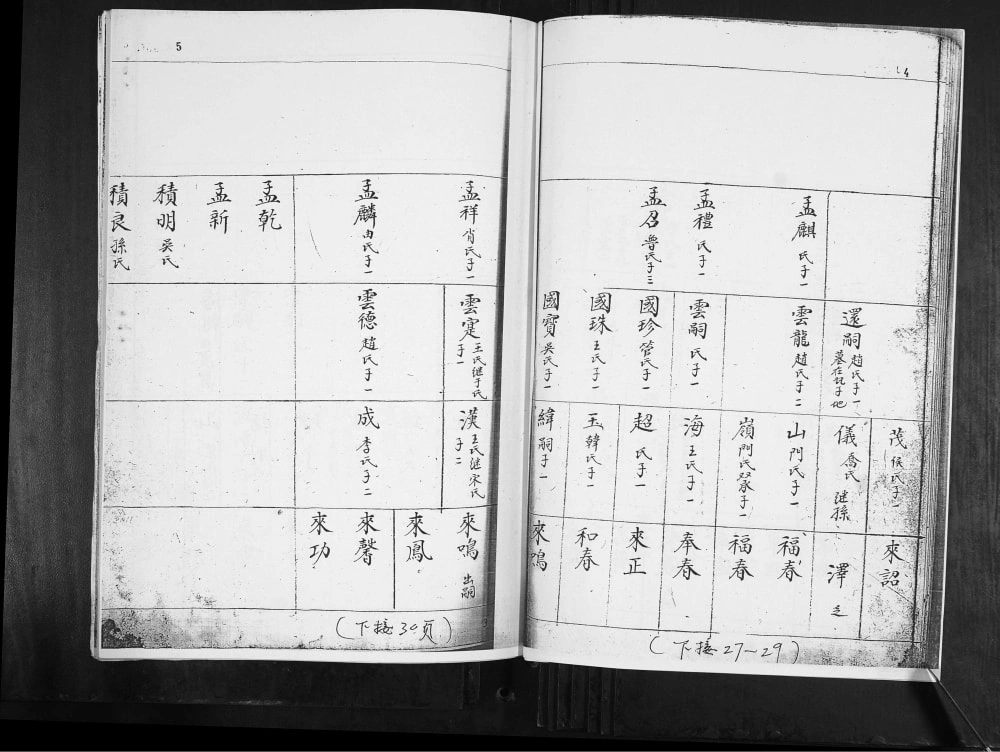 4
孟麒 氏子一
孟禮 氏子一
孟召 魯氏子三
還嗣 趙氏子一
墓在
雲龍 趙氏子二
雲嗣 氏子一
國珍 管氏子一
國珠 王氏子一
國寶 吳氏子一
茂 侯氏子一
儀 喬氏 继孫
山 門氏子一
嶺 門氏双承子一
海 王氏子一
超 氏子一
玉 韓氏子一
緯 嗣子一
來詔
澤
福春
福春
奉春
來正
和春
來鳴
(下接27—29)
5
孟祥 肖氏子一
孟麟 由氏子一
孟乾
孟新
積明 吳氏
積良 孫氏
雲寔 王氏继于氏
子一
雲德 趙氏子一
漢 王氏继宋氏
子二
成 李氏子二
來鳴 出嗣
來鳳
來馨
來功
(下接30页)